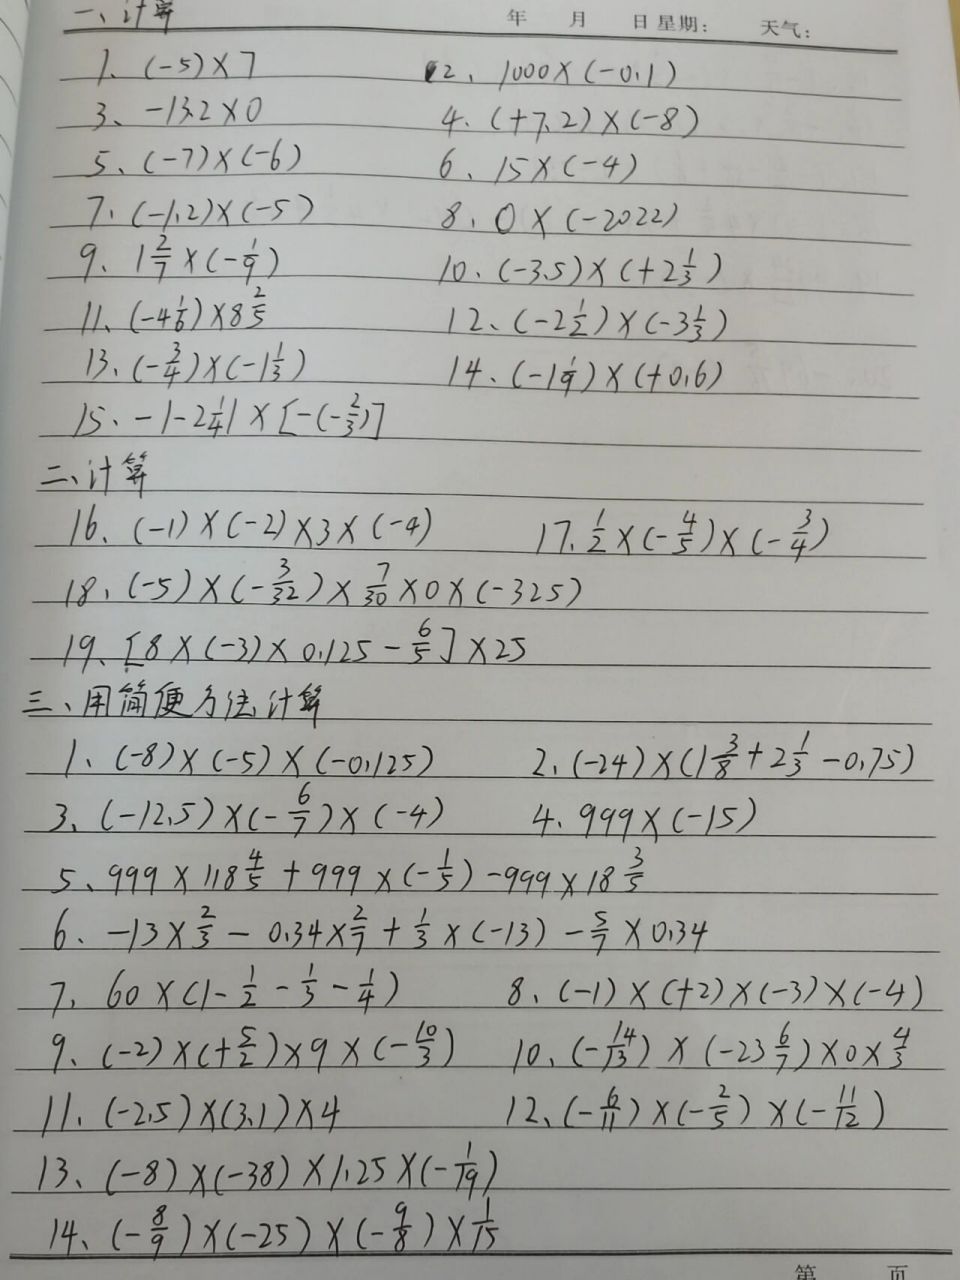 一、计算 年 月 日 星期: 天气:
1、(-5)×7 2、1000×(-0.1)
3、-13.2×0 4、(+7.2)×(-8)
5、(-7)×(-6) 6、15×(-4)
7、(-1.2)×(-5) 8、0×(-2022)
9、1 2/7×(-1/9) 10、(-3.5)×(+2 1/3)
11、(-4 1/6)×8 2/5 12、(-2 1/2)×(-3 1/3)
13、(-3/4)×(-1 1/3) 14、(-1 1/9)×(+0.6)
15、-|-2 1/4|×[-(-2/3)]
二、计算
16、(-1)×(-2)×3×(-4) 17、1/2×(-4/5)×(-3/4)
18、(-5)×(-3/32)×7/30×0×(-325)
19、[8×(-3)×0.125-6/5]×25
三、用简便方法计算
1、(-8)×(-5)×(-0.125) 2、(-24)×(1 3/8+2 1/3-0.75)
3、(-12.5)×(-6/7)×(-4) 4、999×(-15)
5、999×118 4/5+999×(-1/5)-999×18 3/5
6、-13×2/3-0.34×2/7+1/3×(-13)-5/7×0.34
7、60×(1-1/2-1/3-1/4) 8、(-1)×(+2)×(-3)×(-4)
9、(-2)×(+5/2)×9×(-10/3) 10、(-14/13)×(-23 6/7)×0×4/3
11、(-2.5)×(3.1)×4 12、(-6/11)×(-2/5)×(-11/12)
13、(-8)×(-38)×1.25×(-1/19)
14、(-8/9)×(-25)×(-9/8)×1/15
第 页